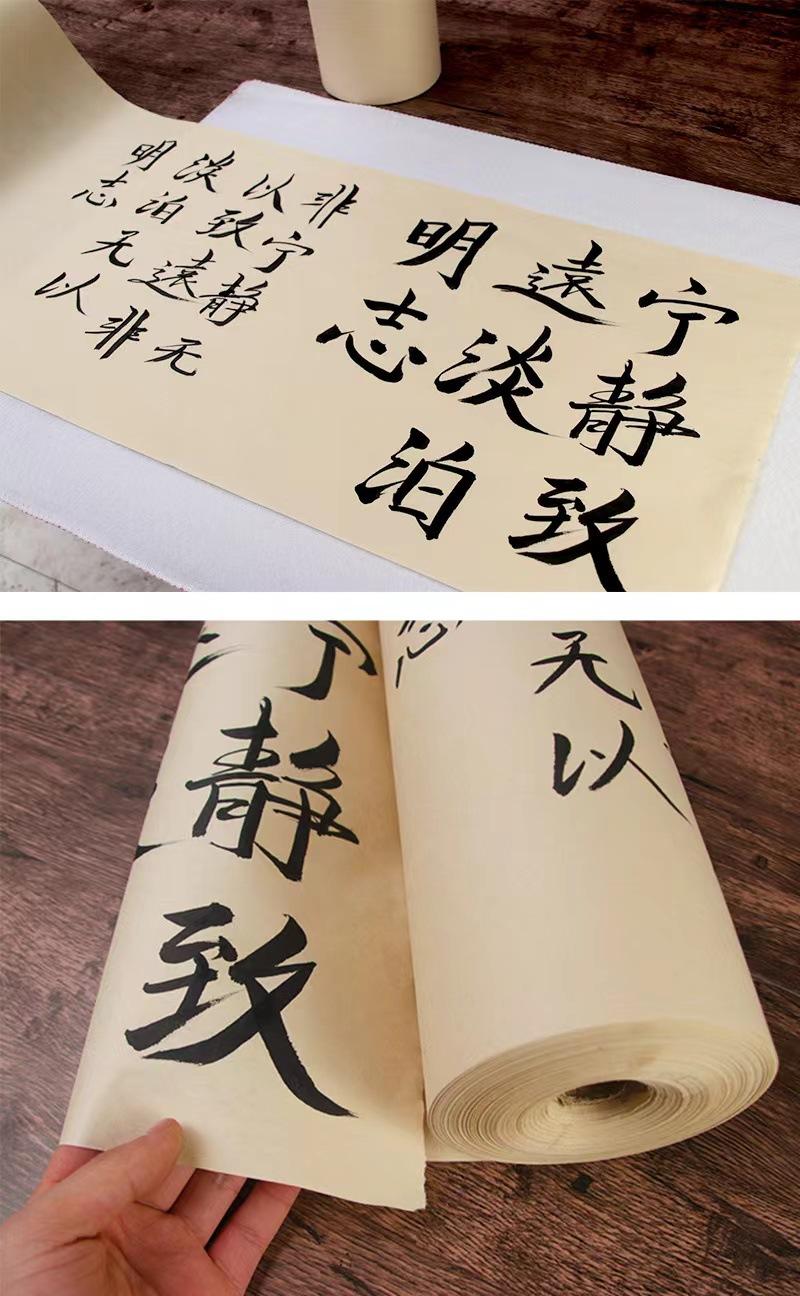 宁静致
遠淡泊
明志
非宁静无
以致遠非
淡泊无以
明志
无以
宁静致